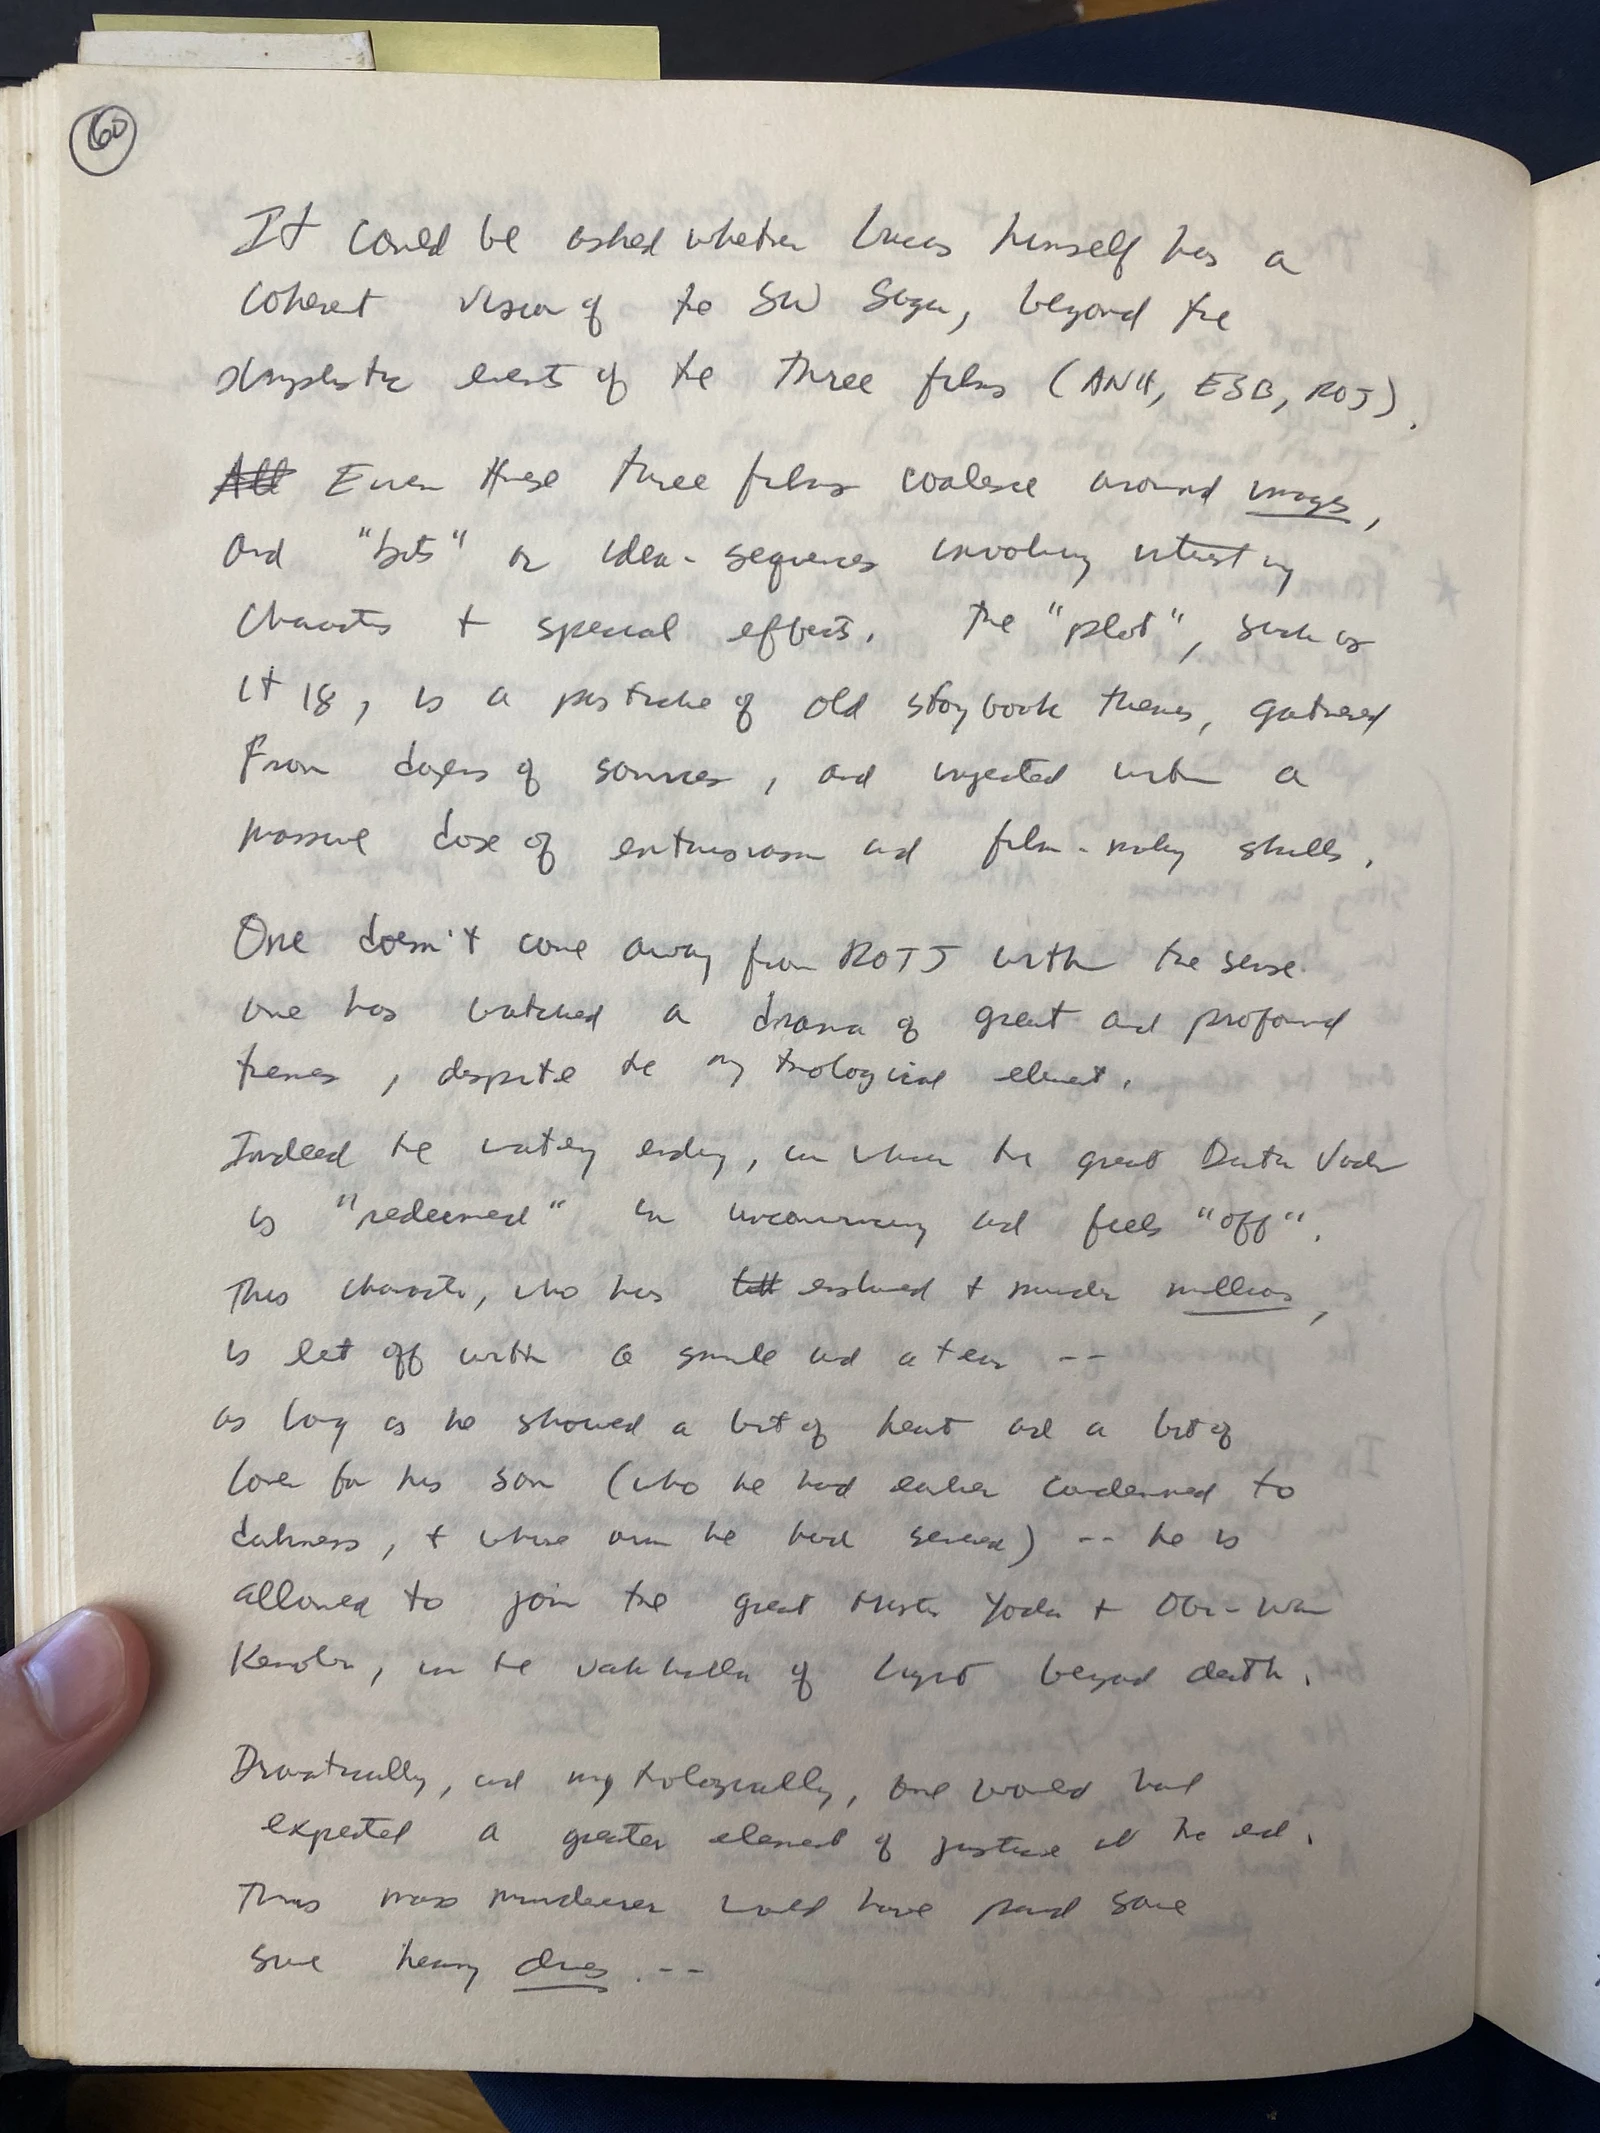 60
It could be asked whether Lucas himself has a
coherent vision of the SW Saga, beyond the
simplistic events of the three films (ANH, ESB, ROJ).
All Even these three films coalesce around images,
and "bits" or idea-sequences involving interesting
characters + special effects. The "plot", such as
it is, is a pastiche of old storybook themes, gathered
from dozens of sources, and injected with a
massive dose of enthusiasm and film-making skills.
One doesn't come away from ROTJ with the sense
one has watched a drama of great and profound
themes, despite the mythological element.
Indeed the watery ending, in which the great Darth Vader
is "redeemed" is unconvincing and feels "off".
This character, who has enslaved + murder millions,
is let off with a smile and a tear --
as long as he showed a bit of heart and a bit of
love for his son (who he had earlier condemned to
darkness, + whose arm he had severed) -- he is
allowed to join the great Master Yoda + Obi-Wan
Kenobi, in the valhalla of light beyond death.
Dramatically, and mythologically, one would had
expected a greater element of justice at the end.
This mass murderer would have paid some
some heavy dues. --